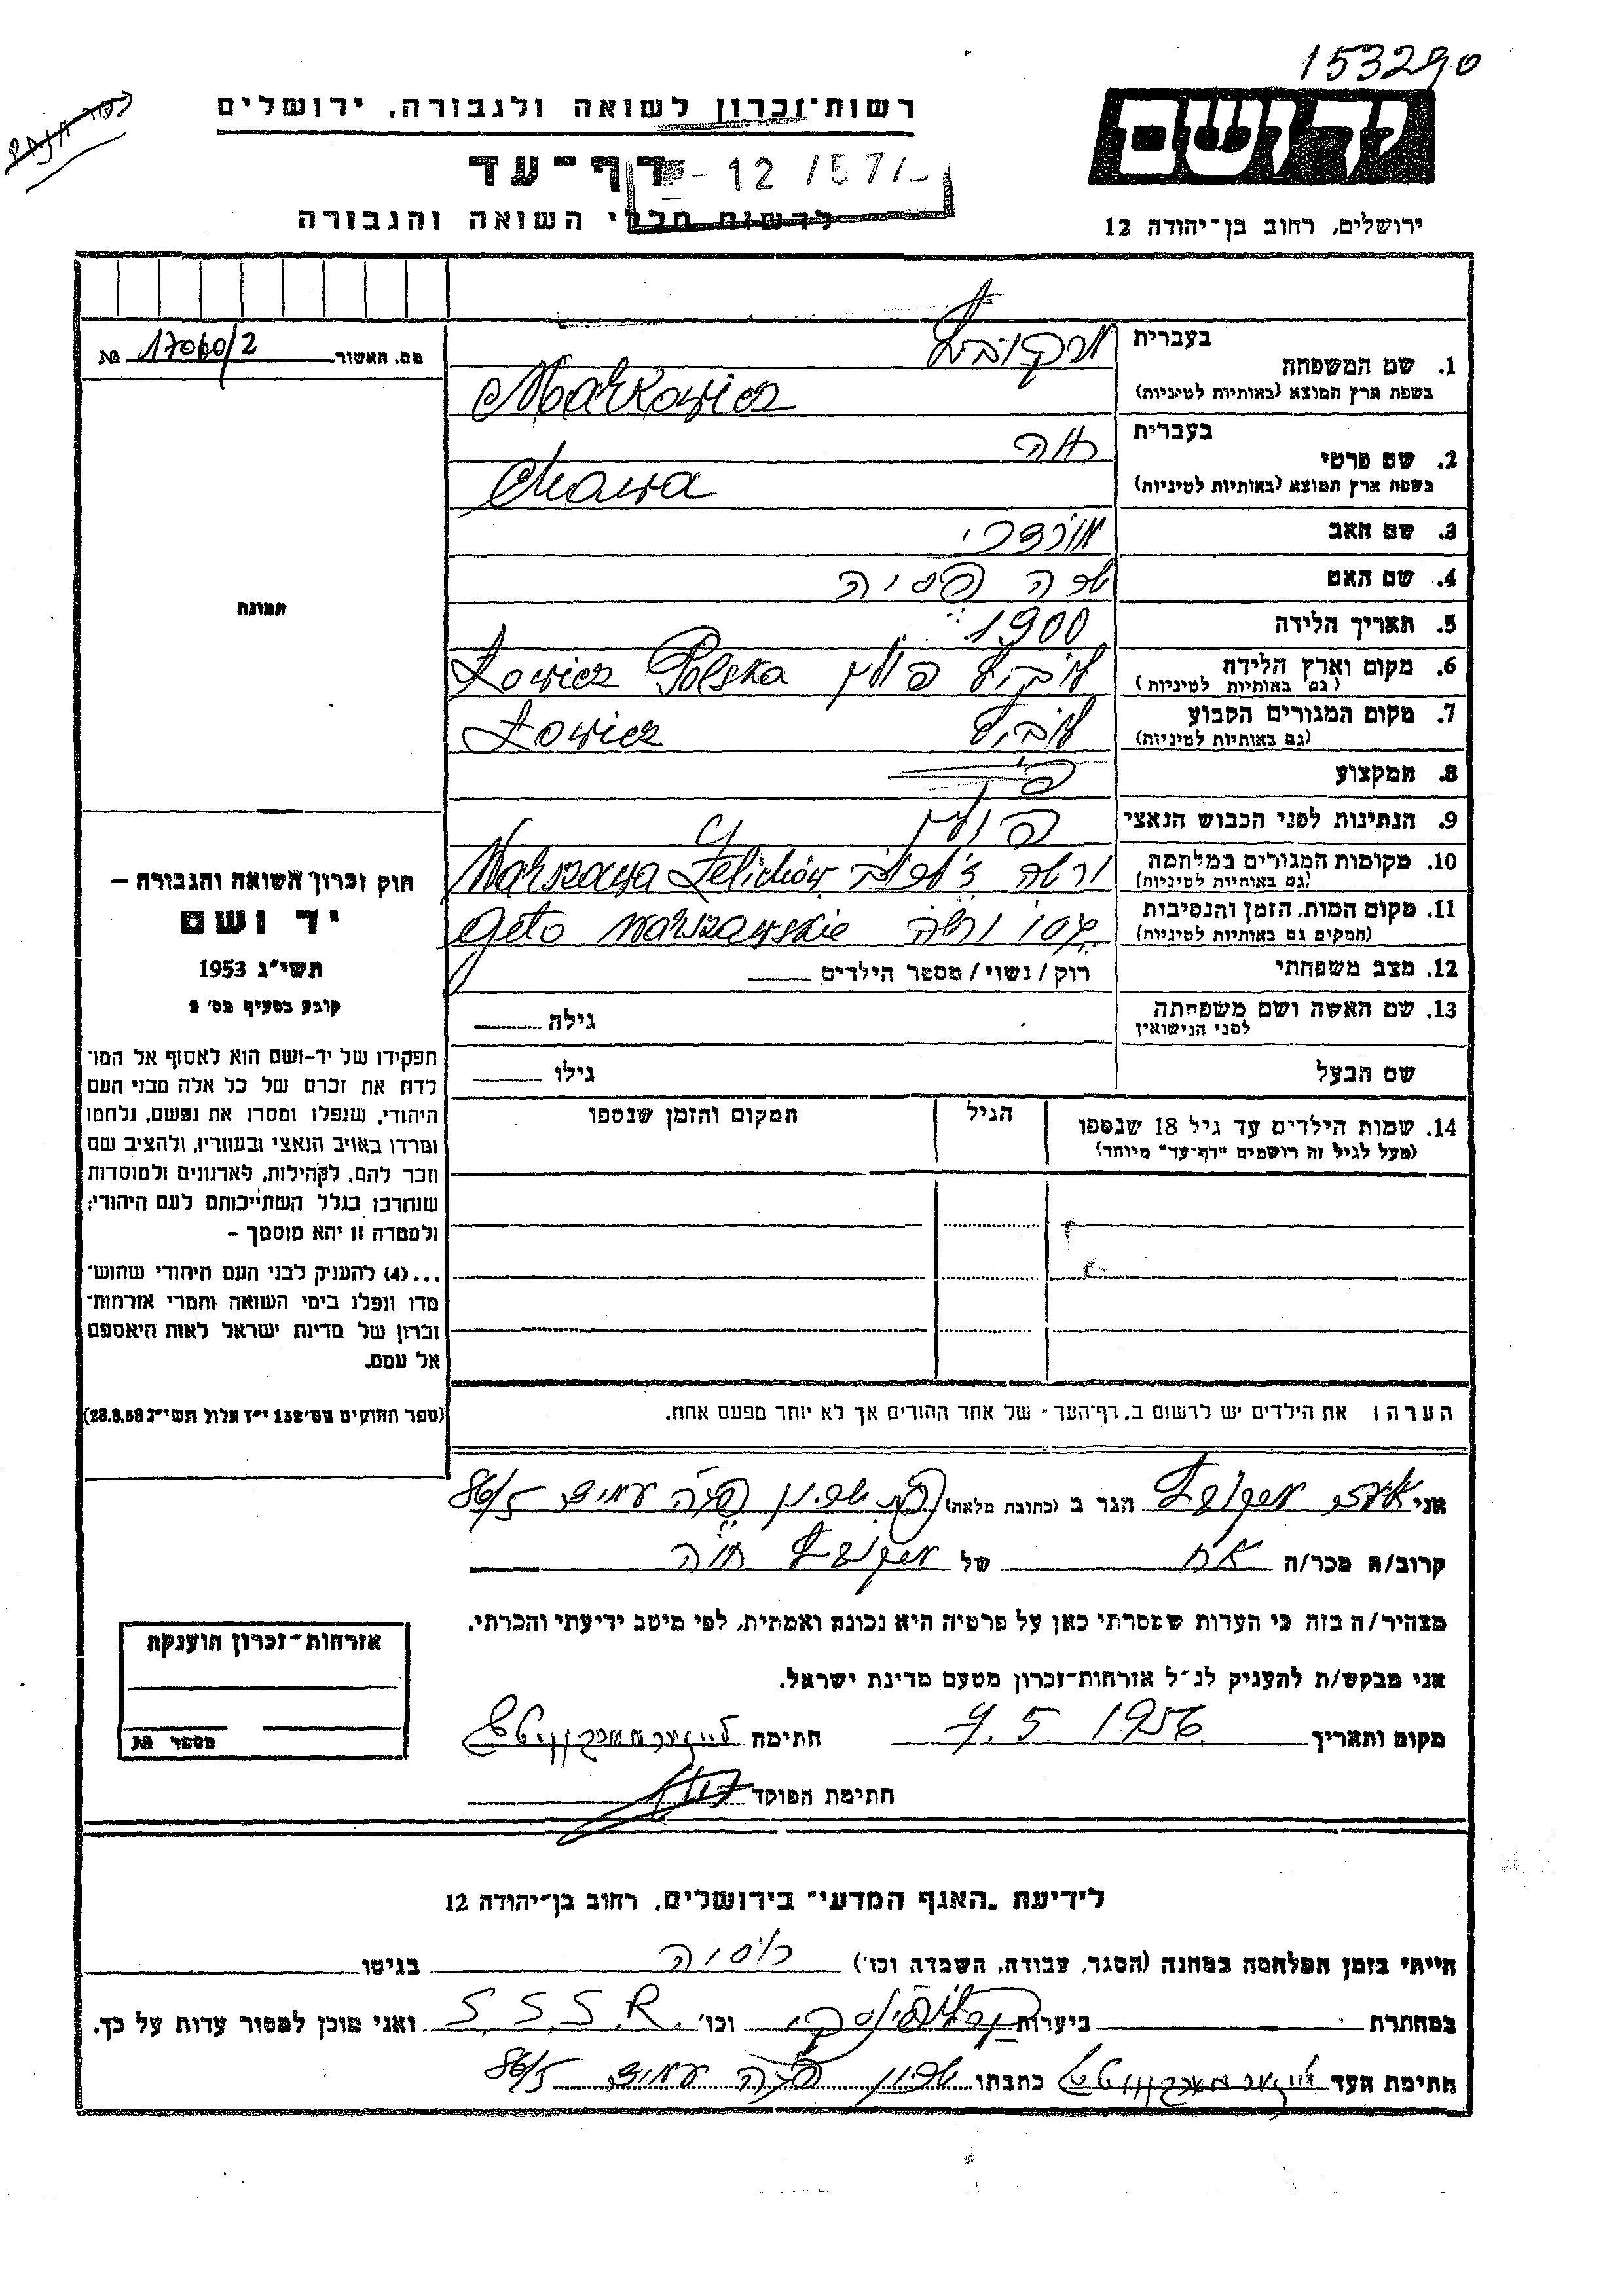 153290
רשות־זכרון לשואה ולגבורה, ירושלים
יד ושם
דף־עד
12
לרשום חללי השואה והגבורה
ירושלים, רחוב בן־יהודה 12
מס. האשור 17060/2 №
תמונה
1. שם המשפחה
בעברית מרקוביץ
בשפת ארץ המוצא (באותיות לטיניות) Markowicz
2. שם פרטי
בעברית חוה
בשפת ארץ המוצא (באותיות לטיניות) Chawa
3. שם האב מורדכי
4. שם האם
5. תאריך הלידה 1900
6. מקום וארץ הלידה לוביץ פולין Łowicz Polska
(גם באותיות לטיניות)
7. מקום המגורים הקבוע לוביץ Łowicz
(גם באותיות לטיניות)
8. המקצוע
9. הנתינות לפני הכבוש הנאצי פולין
10. מקומות המגורים במלחמה ורשה Warszawa Żelichów
(גם באותיות לטיניות)
11. מקום המות, הזמן והנסיבות גטו ורשה Geto Warszawskie
(המקום גם באותיות לטיניות)
12. מצב משפחתי רוק/נשוי/מספר הילדים
13. שם האשה ושם משפחתה גילה
לפני הנישואין
שם הבעל גילו
14. שמות הילדים עד גיל 18 שנספו הגיל המקום והזמן שנספו
(מעל לגיל זה רושמים "דף־עד" מיוחד)
הערה: את הילדים יש לרשום ב„דף־העד" של אחד ההורים אך לא יותר מפעם אחת.
חוק זכרון השואה והגבורה –
יד ושם
תשי"ג 1953
קובע בסעיף מס' 2
תפקידו של יד-ושם הוא לאסוף אל המו־
לדת את זכרם של כל אלה מבני העם
היהודי, שנפלו ומסרו את נפשם, נלחמו
ומרדו באויב הנאצי ובעוזריו, ולהציב שם
וזכר להם, לקהילות, לארגונים ולמוסדות
שנחרבו בגלל השתייכותם לעם היהודי;
ולמטרה זו יהא מוסמך –
...(4) להעניק לבני העם היהודי שהוש־
מדו ונפלו בימי השואה והמרי אזרחות־
זכרון של מדינת ישראל לאות היאספם
אל עמם.
(ספר החוקים מס' 132 י"ז אלול תשי"ג 28.8.53)
אני מרקוביץ הגר ב (כתובת מלאה) 86/5
קרוב/ה מכר/ה אח של מרקוביץ חוה
מצהיר/ה בזה כי העדות שמסרתי כאן על פרטיה היא נכונה ואמתית, לפי מיטב ידיעתי והכרתי.
אני מבקש/ת להעניק לנ"ל אזרחות־זכרון מטעם מדינת ישראל.
מקום ותאריך 7.5.1956 חתימה
חתימת הפוקד
אזרחות־זכרון הוענקה
מספר №
לידיעת „האגף המדעי" בירושלים, רחוב בן־יהודה 12
הייתי בזמן המלחמה במחנה (הסגר, עבודה, השמדה וכו') רוסיה בגיטו
במחתרת ביערות וכו' S.S.S.R. ואני מוכן למסור עדות על כך.
חתימת העד כתבתו 86/5